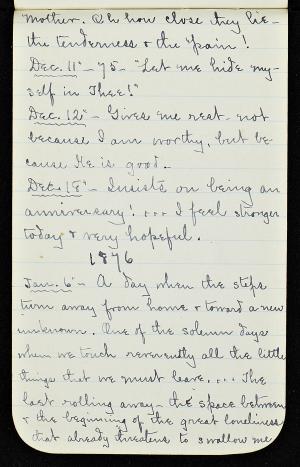 mother. Oh how close they lie –
the tenderness & the pain!
Dec. 11" – 75 – "Let me hide my-
self in Thee!"
Dec. 12" – Gives me rest – not
because I am worthy, but be-
cause He is good.
Dec. 18" – Insists on being an
anniversary! .... I feel stronger
today & very hopeful.
1876
Jan. 6" – A day when the steps
turn away from home & toward a new
unknown. One of the solemn days
when we touch reverently all the little
things that we must leave. ... The
last rolling away – the space between
& the beginning of the great loneliness
that already threatens to swallow me